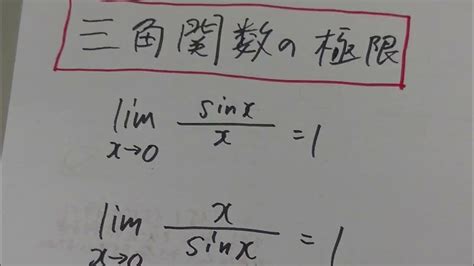 三角関数の極限
lim x→0 sinx/x = 1
lim x→0 x/sinx = 1